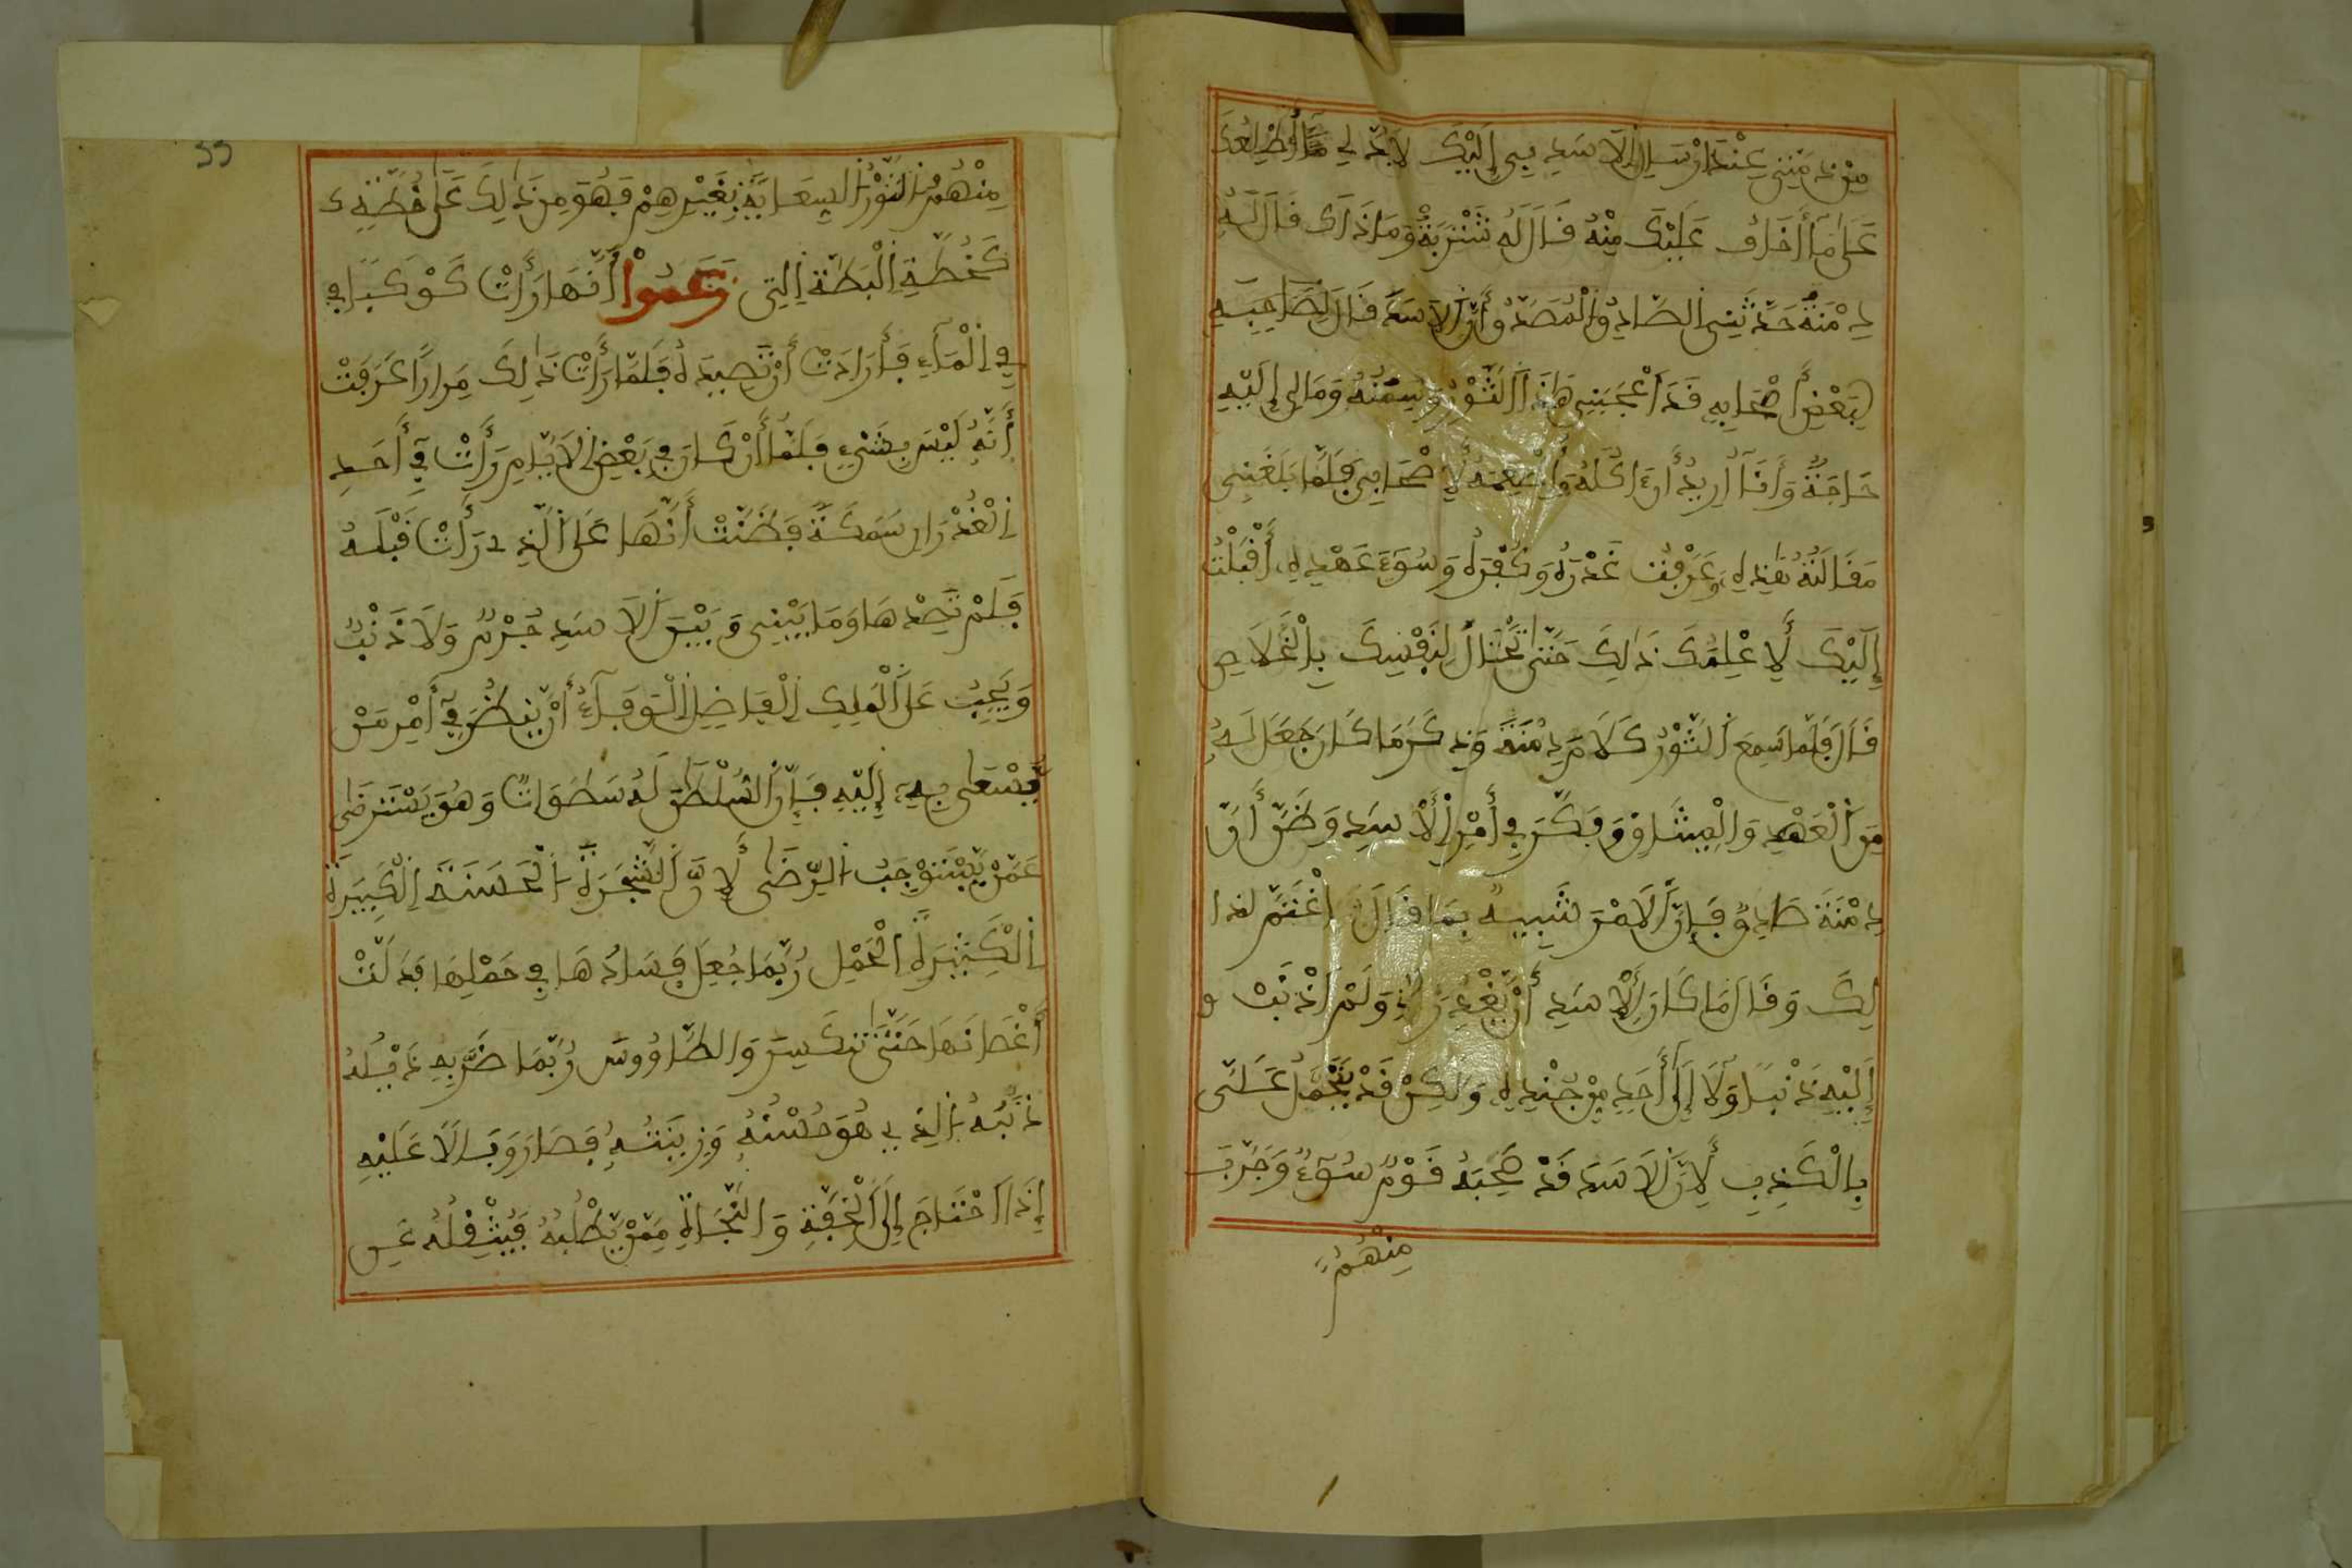 مِن ذِمَّتِي عِنْدَ إِرْسَالِ الْأَسَدِ بِي إِلَيْكَ لَا بُدَّ لِي مَا أُطْلِعُكَ
عَلَى مَا أَخَافُ عَلَيْكَ مِنْهُ فَالَ لَهُ شَنْزَبَةُ وَمَا ذَاكَ فَالَ لَهُ
دِمْنَةُ حَدَّثَنِي الصَّادِقُ الْمُصَدَّقُ أَنَّ الْأَسَدَ فَالَ لِصَاحِبِهِ
لِبَعْضِ أَصْحَابِهِ فَدَ اعْجَبَنِي هَذَا الثَّوْرُ وَسِمْنُهُ وَمَا لِي إِلَيْهِ
حَاجَةٌ وَأَنَا أُرِيدُ أَنَ اكُلَهُ وَأُطْعِمَهُ لِأَصْحَابِي فَلَمَّا بَلَغَنِي
مَفَالَتُهُ هَٰذِهِ وَعَرَفْتُ غَدْرَهُ وَكُفْرَهُ وَسُوءَ عَهْدِهِ أَفْبَلْتُ
إِلَيْكَ لِأُعْلِمَكَ ذَٰلِكَ حَتَّىٰ تَحْتَالَ لِنَفْسِكَ بِالْخَلَاصِ
فَالَ فَلَمَّا سَمِعَ الثَّوْرُ كَلَامَ دِمْنَةَ وَذِكْرَ مَا كَانَ جَعَلَ لَهُ
مِنَ الْعَهْدِ وَالْمِيثَاقِ وَفَكَّرَ فِي أَمْرِ الْأَسَدِ وَظَنَّ أَنَّ
دِمْنَةَ صَادِقٌ فَإِنَّ الْأَمْرَ شَبِيهٌ بِمَا فَالَ اغْتَمَّ لذا
لِكَ وَفَالَ مَا كَانَ لِلْأَسَدِ أَنْ يَغْدِرَ بِي وَلَمْ أُذْنِبْ و
إِلَيْهِ ذَنْبًا وَلَا إِلَىٰ أَحَدٍ مِنْ جُنْدِهِ وَلَكِنْ فَدْ يُحْمَلُ عَلَيَّ
بِالْكَذِبِ لِأَنَّ الْأَسَدَ فَدْ صَحِبَهُ فَوْمُ سُوءٍ وَجَرَّبَ
مِنْهُمْ
55
مِنْهُمُ الثَّوْرُ السِعَايَةَ بِغَيْرِهِمْ فَهُوَ مِن ذَٰلِكَ عَلَىٰ خُطَّةٍ ك
كَخُطَّةِ الْبَطَّةِ الَّتِي زَعَمُواْ أَنَّهَا رَأَتْ كَوْكَبًا فِ
فِي الْمَاءِ فَأَرَادَتْ أَنْ تَصِيدَهُ فَلَمَّا رَأَتْ ذَٰلِكَ مِرَارًا عَرَفَتْ
أَنَّهُ لَيْسَ بِشَيْءٍ فَلَمَّا أَنْ كَانَ فِي بَعْضِ الْأَيَّامِ رَأَتْ فِي أَحَدِ
الْغُدْرَانِ سَمَكَةً فَظَنَّتْ أَنَّهَا عَلَى الَّذِي رَأَتْ فَبْلَهُ
فَلَمْ تَصِدْهَا وَمَا بَيْنِي وَبَيْنَ الْأَسَدِ جُرْمٌ وَلَا ذَنْبٌ
وَيَجِبُ عَلَى الْمَلِكِ الْفَاضِلِ الْوَفَاءُ أَنْ يَنظُرَ فِي أَمْرِ مَنْ
يُّسْعَى بِهِ إِلَيْهِ فَإِنَّ السُّلْطَٰنَ لَهُ سَطَوَاتٌ وَهُوَ يَسْتَرْضَى
عَمَّنْ يَّسْتَوْجِبُ الرِّضَى لِأَنَّ الشَّجَرَةَ الْحَسَنَةَ الْكَبِيرَةَ
الْكَثِيرَةَ الْحَمْلِ رُبَّمَا جُعِلَ فَسَادُهَا فِي حَمْلِهَا فَدَلَّتْ
أَغْصَانَهَا حَتَّىٰ تَنكَسِرَ وَالطَّاوُوسَ رُبَّمَا ضَرَّ بِهِ ذَيْلُهُ
ذَنَبُهُ الَّذِي هُوَ حُسْنُهُ وَزِينَتُهُ فَصَارَ وَبَالًا عَلَيْهِ
إِذَا احْتَاجَ إِلَى الْخِفَّةِ وَالنَّجَاةِ مِمَّنْ يَّطْلُبُهُ فَيُثْفِلُهُ عَنِ